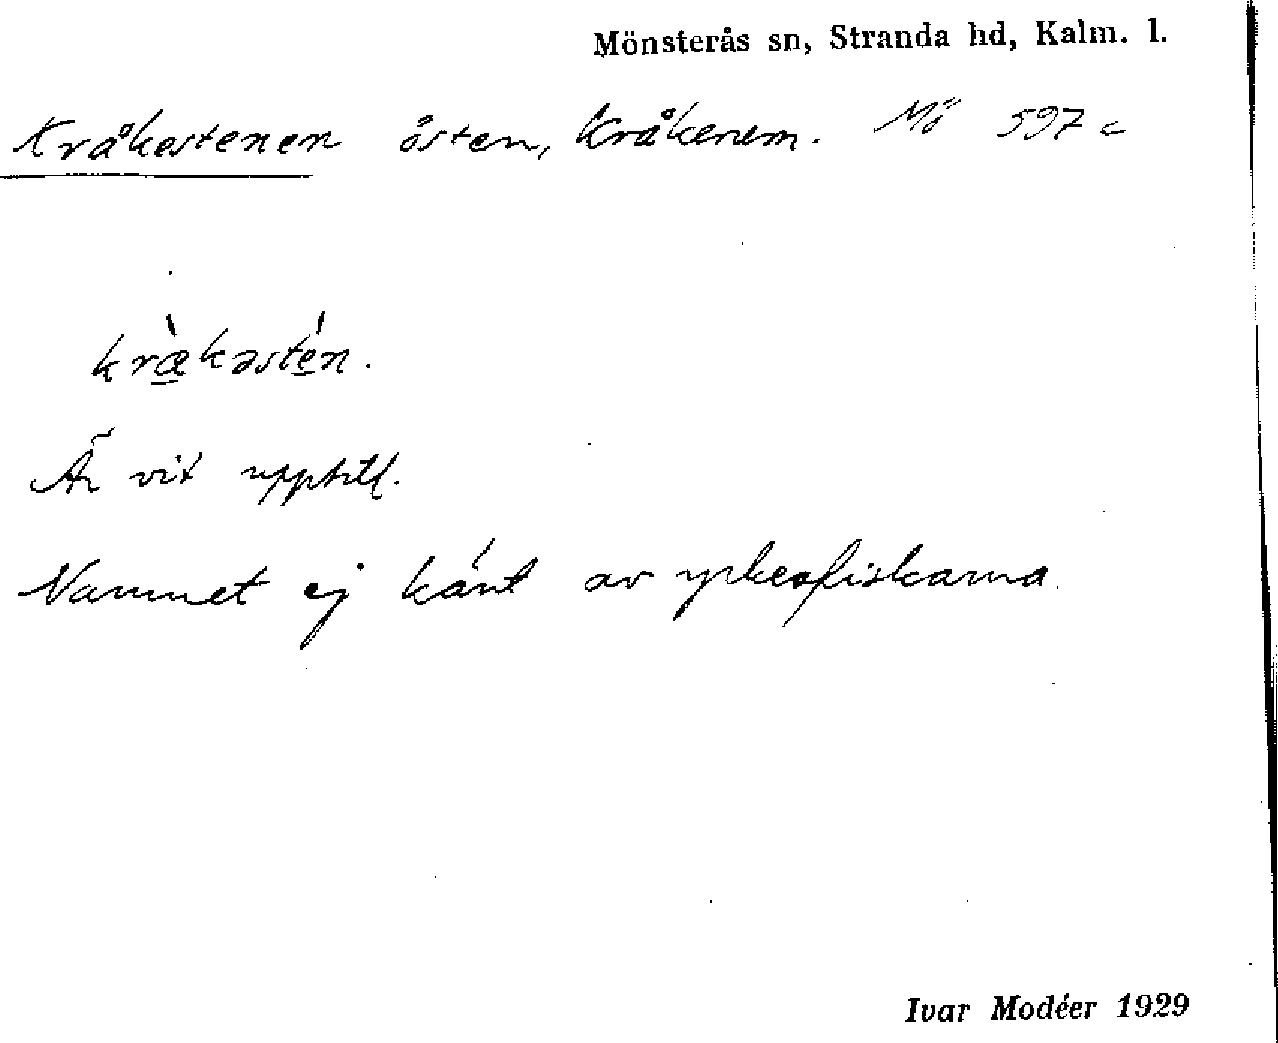 Mönsterås sn, Stranda hd, Kalm. l.
Kråkestenen östen, Kråkenem. Mö 597 c
kræ̀kəstén.
Är vit upptill.
Namnet ej känt av yrkesfiskarna.
Ivar Modéer 1929